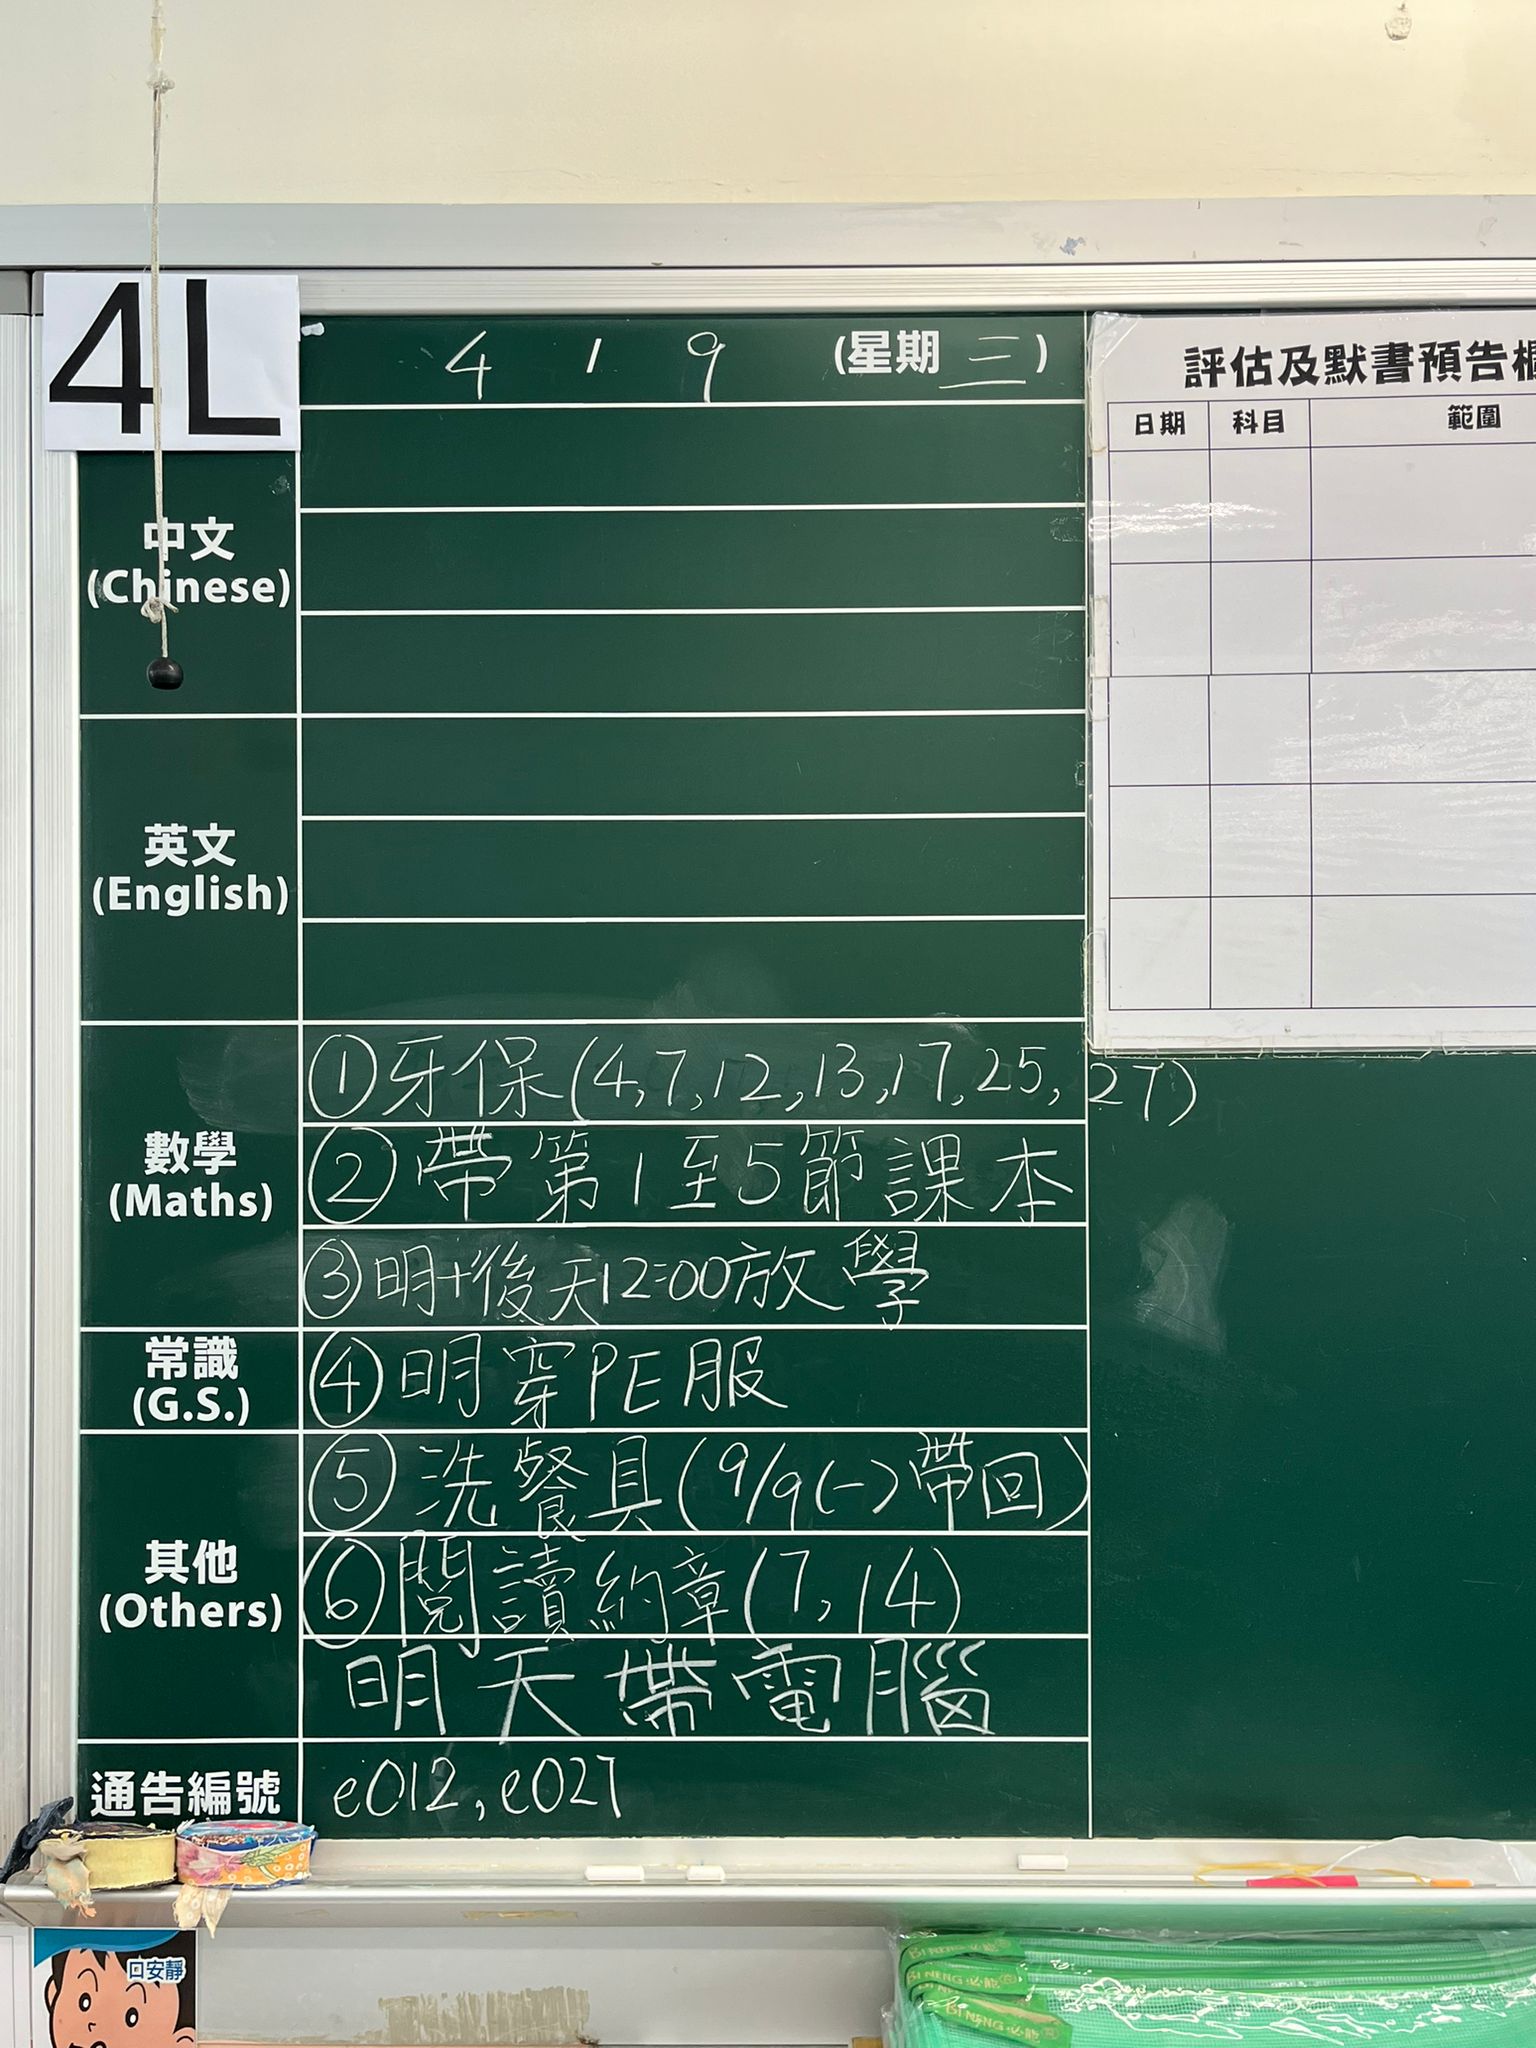 4L
4 / 9 (星期 三)
中文
(Chinese)
英文
(English)
數學
(Maths)
①牙保(4,7,12,13,17,25,27)
②帶第1至5節課本
③明+後天12:00放學
常識
(G.S.)
④明穿PE服
其他
(Others)
⑤洗餐具(9/9(一)帶回)
⑥閱讀約章(7,14)
明天帶電腦
通告編號
e012,e027
評估及默書預告欄
日期 科目 範圍
口安靜
BINENG·必能
BINENG·必能
BINENG·必能